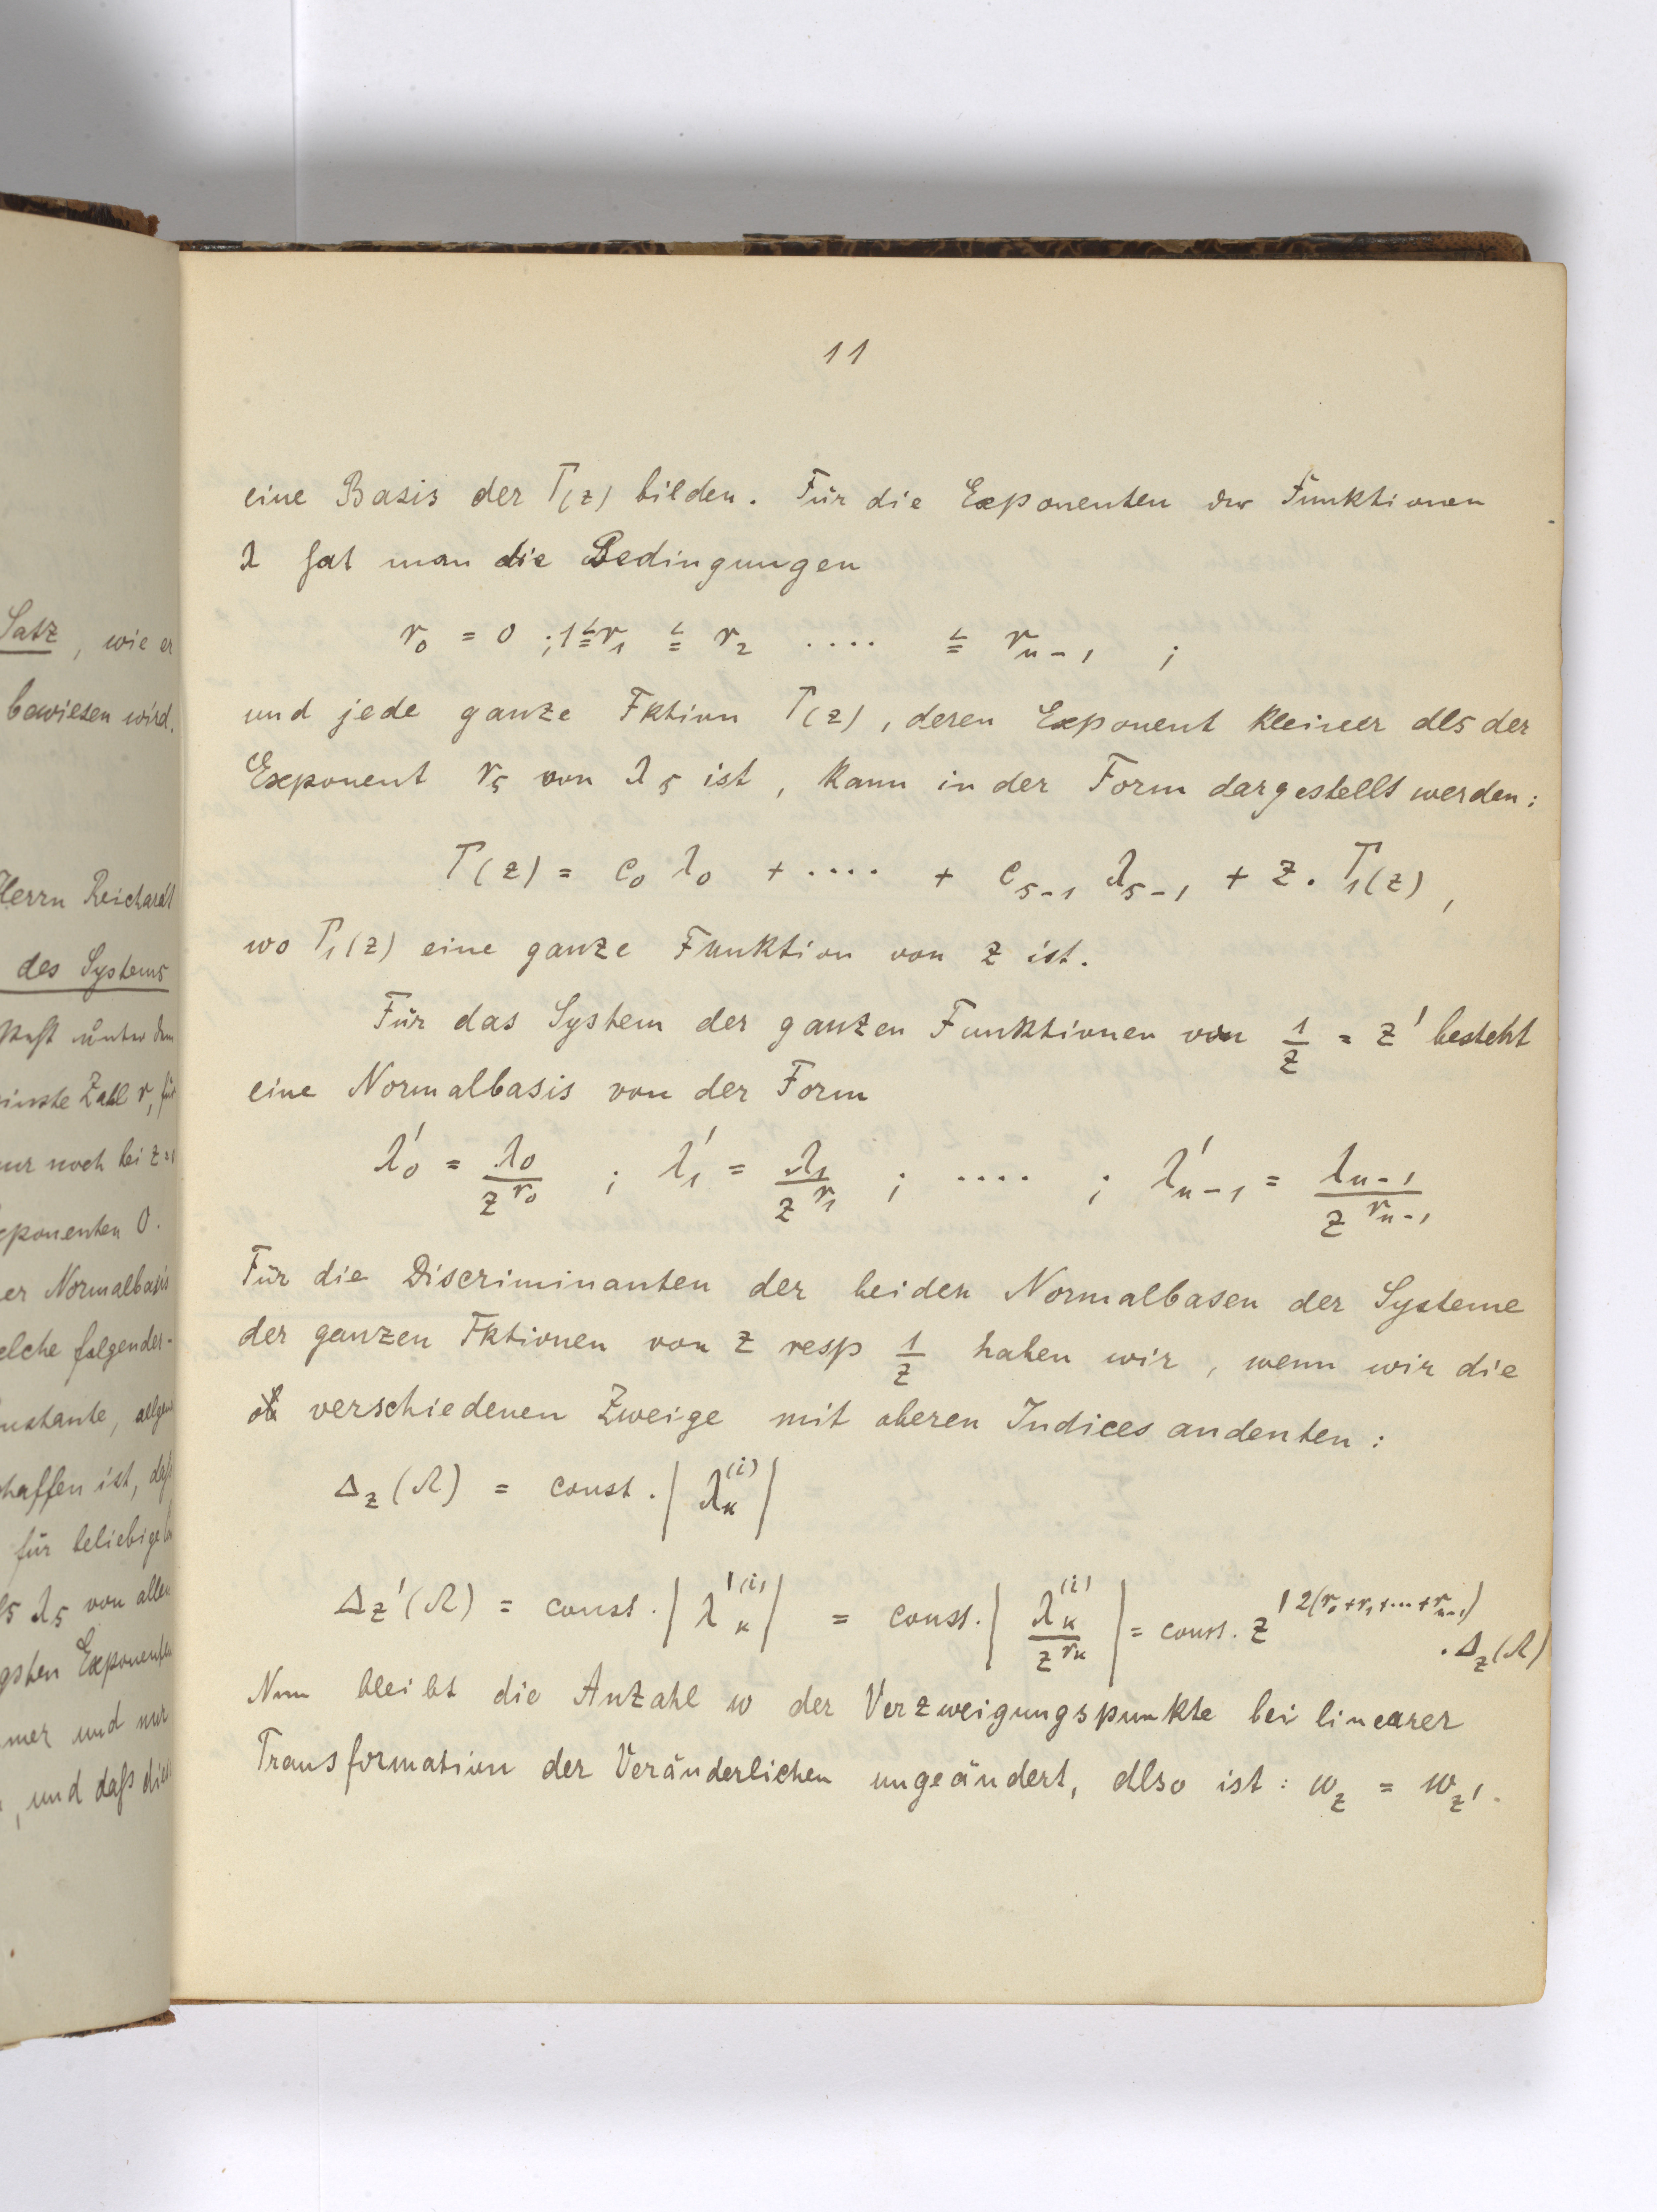 Satz, wie er
bewiesen wird.
Herrn Reichardt
des Systems
nur noch bei z=1
Exponenten 0.
er Normalbasis
elche folgender-
haffen ist, daß
für beliebige
λ_s von allen
gsten Exponenten
mer und nur
, und daß diese
11
eine Basis der T(z) bilden. Für die Exponenten der Funktionen
λ hat man die Bedingungen
r_0 = 0 ; 1 ≦ r_1 ≦ r_2 .... ≦ r_{n-1} ;
und jede ganze Fktion T(z), deren Exponent kleiner als der
Exponent r_s von λ_s ist, kann in der Form dargestellt werden:
T(z) = c_0 λ_0 + .... + c_{s-1} λ_{s-1} + z. T_1(z),
wo T_1(z) eine ganze Funktion von z ist.
Für das System der ganzen Funktionen von 1/z = z' besteht
eine Normalbasis von der Form
λ'_0 = λ_0/z^{r_0} ; λ'_1 = λ_1/z^{r_1} ; .... ; λ'_{n-1} = λ_{n-1}/z^{r_{n-1}}
Für die Discriminanten der beiden Normalbasen der Systeme
der ganzen Fktionen von z resp 1/z haben wir, wenn wir die
verschiedenen Zweige mit oberen Indices andeuten:
Δ_z(Λ) = const. | λ_κ^{(i)} |
Δ_z'(Λ) = const. | λ'_κ^{(i)} | = const. | λ_κ^{(i)}/z^{r_κ} | = const. z'^{2(r_0+r_1+...+r_{n-1})} . Δ_z(Λ)
Nun bleibt die Anzahl w der Verzweigungspunkte bei linearer
Transformation der Veränderlichen ungeändert, also ist: w_z = w_z'.